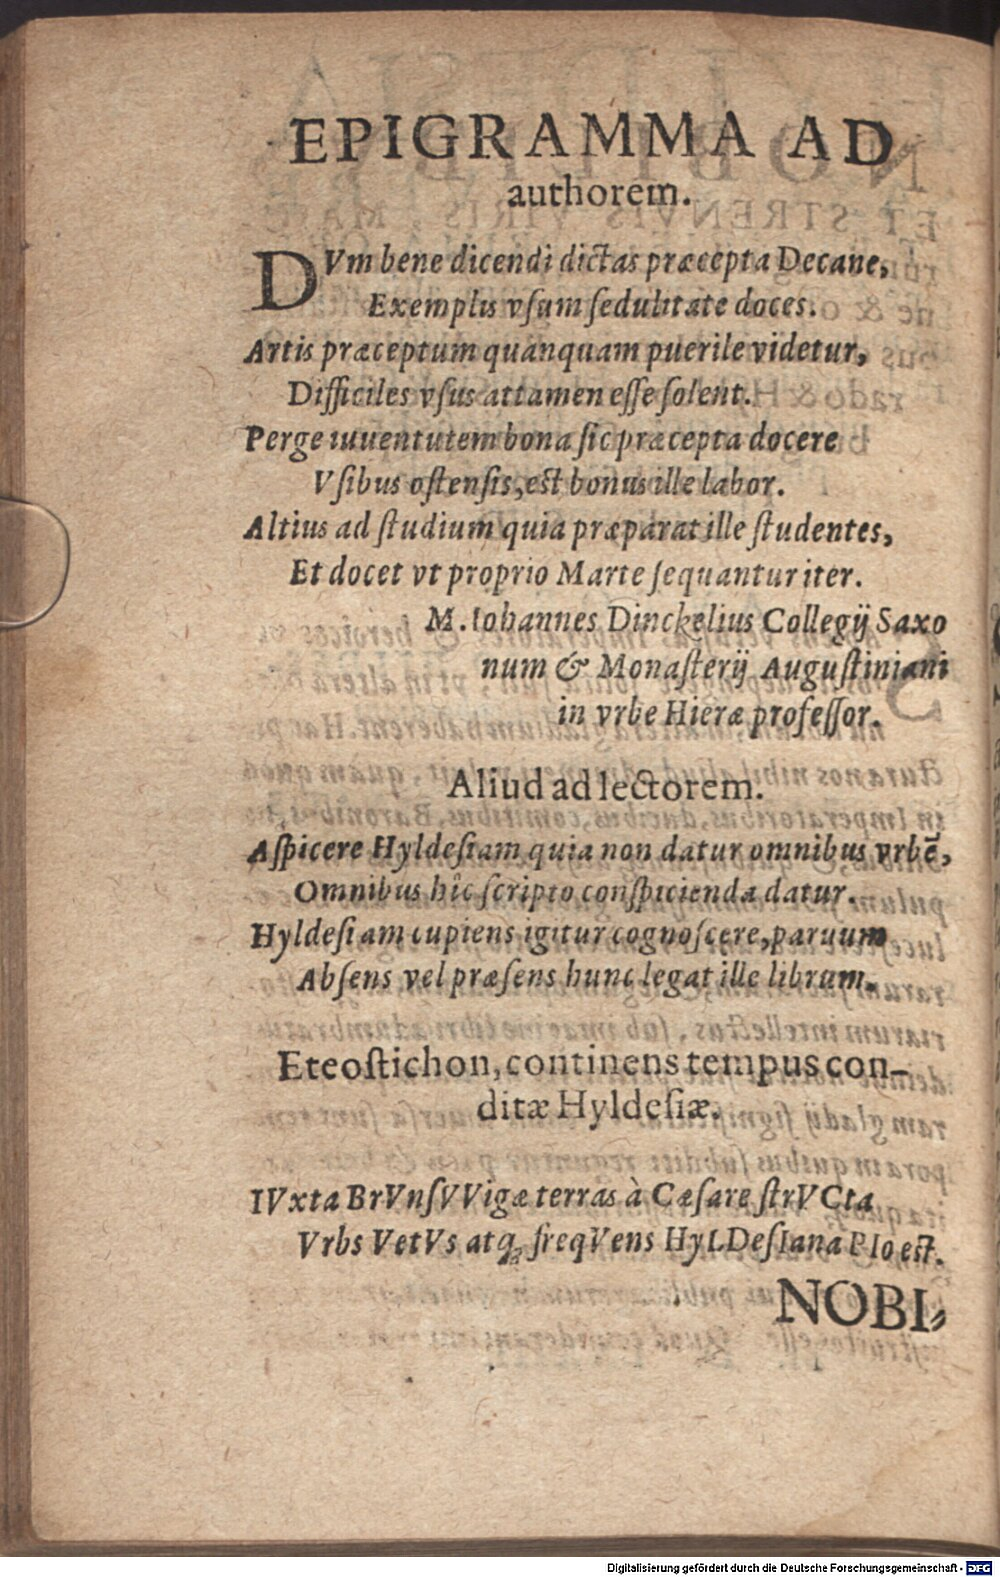 EPIGRAMMA AD
authorem.
DVm bene dicendi dictas præcepta Decane,
Exemplis vſum ſedulitate doces.
Artis præceptum quanquam puerile videtur,
Difficiles vſus attamen eſſe ſolent.
Perge iuuentutem bona ſic præcepta docere
Vſibus oſtenſis, est bonus ille labor.
Altius ad ſtudium quia præparat ille ſtudentes,
Et docet vt proprio Marte ſequantur iter.
M. Iohannes Dinckelius Collegij Saxo
num & Monaſterij Auguſtiniani
in vrbe Hieræ profeſſor.
Aliud ad lectorem.
Aſpicere Hyldeſiam quia non datur omnibus vrbē,
Omnibus hîc ſcripto conſpicienda datur.
Hyldeſiam cupiens igitur cognoſcere, paruum
Abſens vel præſens hunc legat ille librum.
Eteoſtichon, continens tempus con-
ditæ Hyldeſiæ.
IVxta BrVnſVVigæ terras à Cæſare ſtrVCta
Vrbs VetVs atq; freqVens HyLDeſIana PIo eſt.
NOBI-
Digitalisierung gefördert durch die Deutsche Forschungsgemeinschaft - DFG